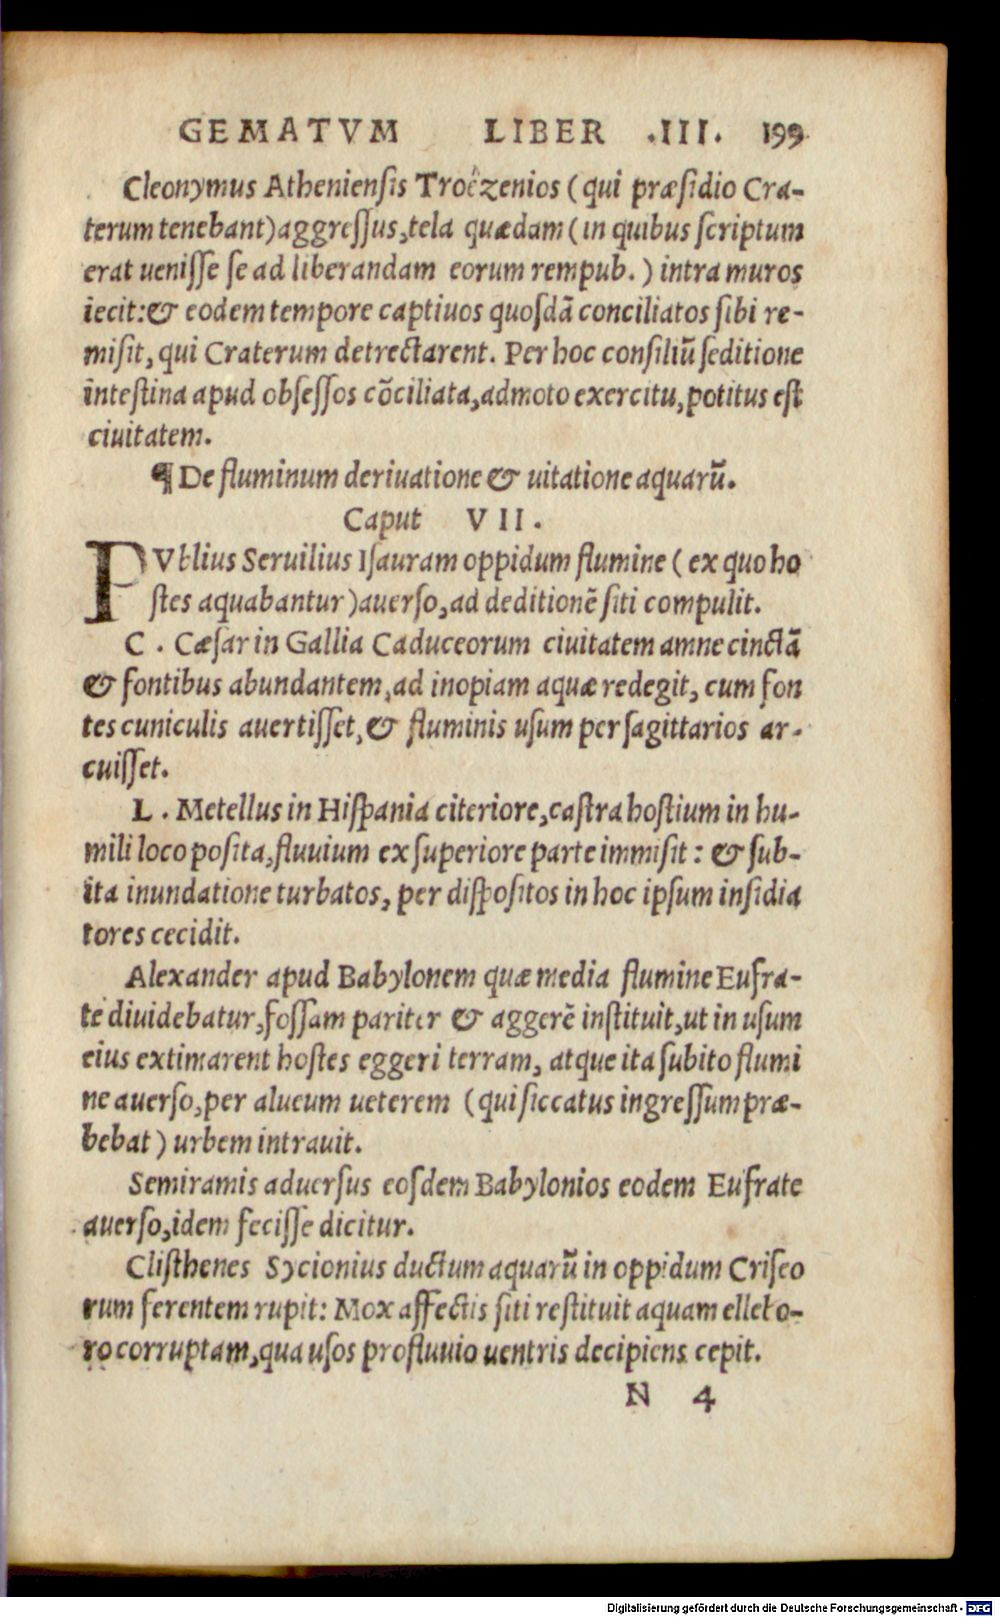 GEMATVM LIBER .III. 199
Cleonymus Atheniensis Troëzenios (qui præsidio Cra-
terum tenebant) aggressus, tela quædam (in quibus scriptum
erat uenisse se ad liberandam eorum rempub.) intra muros
iecit: & eodem tempore captiuos quosdã conciliatos sibi re-
misit, qui Craterum detrectarent. Per hoc consiliũ seditione
intestina apud obsessos cõciliata, admoto exercitu, potitus est
ciuitatem.
¶ De fluminum deriuatione & uitatione aquarũ.
Caput VII.
PVblius Seruilius Isauram oppidum flumine (ex quo ho
stes aquabantur) auerso, ad deditionẽ siti compulit.
C. Cæsar in Gallia Caduceorum ciuitatem amne cinctã
& fontibus abundantem, ad inopiam aquæ redegit, cum fon
tes cuniculis auertisset, & fluminis usum per sagittarios ar-
cuisset.
L. Metellus in Hispania citeriore, castra hostium in hu-
mili loco posita, fluuium ex superiore parte immisit: & sub-
ita inundatione turbatos, per dispositos in hoc ipsum insidia
tores cecidit.
Alexander apud Babylonem quæ media flumine Eufra-
te diuidebatur, fossam pariter & aggerẽ instituit, ut in usum
eius extimarent hostes eggeri terram, atque ita subito flumi
ne auerso, per alueum ueterem (qui siccatus ingressum præ-
bebat) urbem intrauit.
Semiramis aduersus eosdem Babylonios eodem Eufrate
auerso, idem fecisse dicitur.
Clisthenes Sycionius ductum aquarũ in oppidum Criseo
rum ferentem rupit: Mox affectis siti restituit aquam ellebo-
ro corruptam, qua usos profluuio uentris decipiens cepit.
N 4
Digitalisierung gefördert durch die Deutsche Forschungsgemeinschaft - DFG